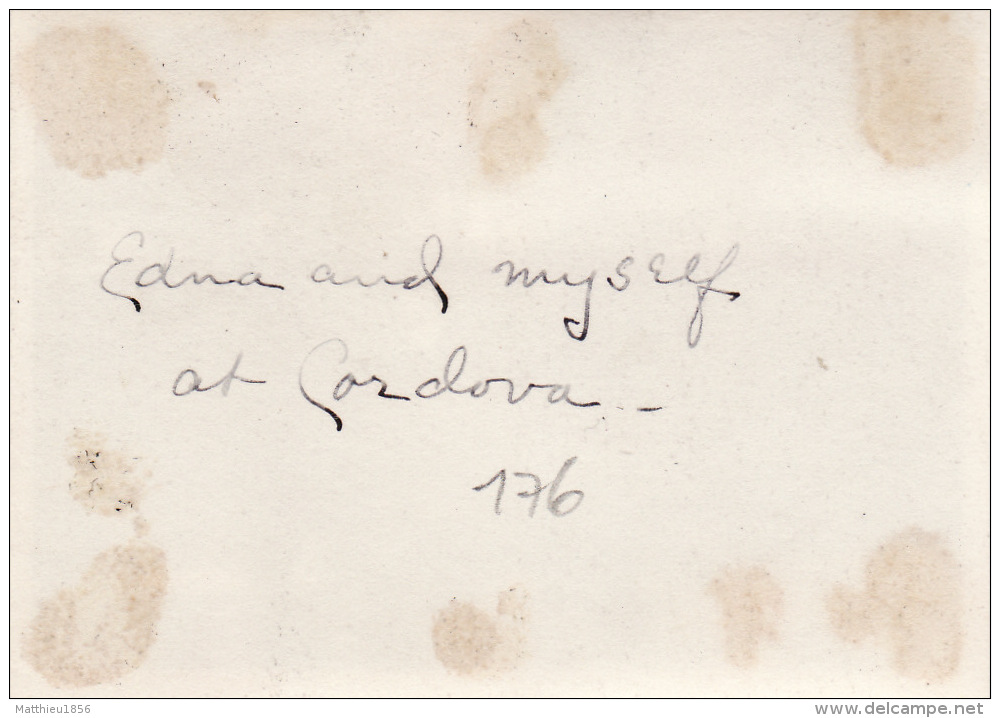 Edna and myself
at Cordova -
176
Matthieu1856
www.delcampe.net